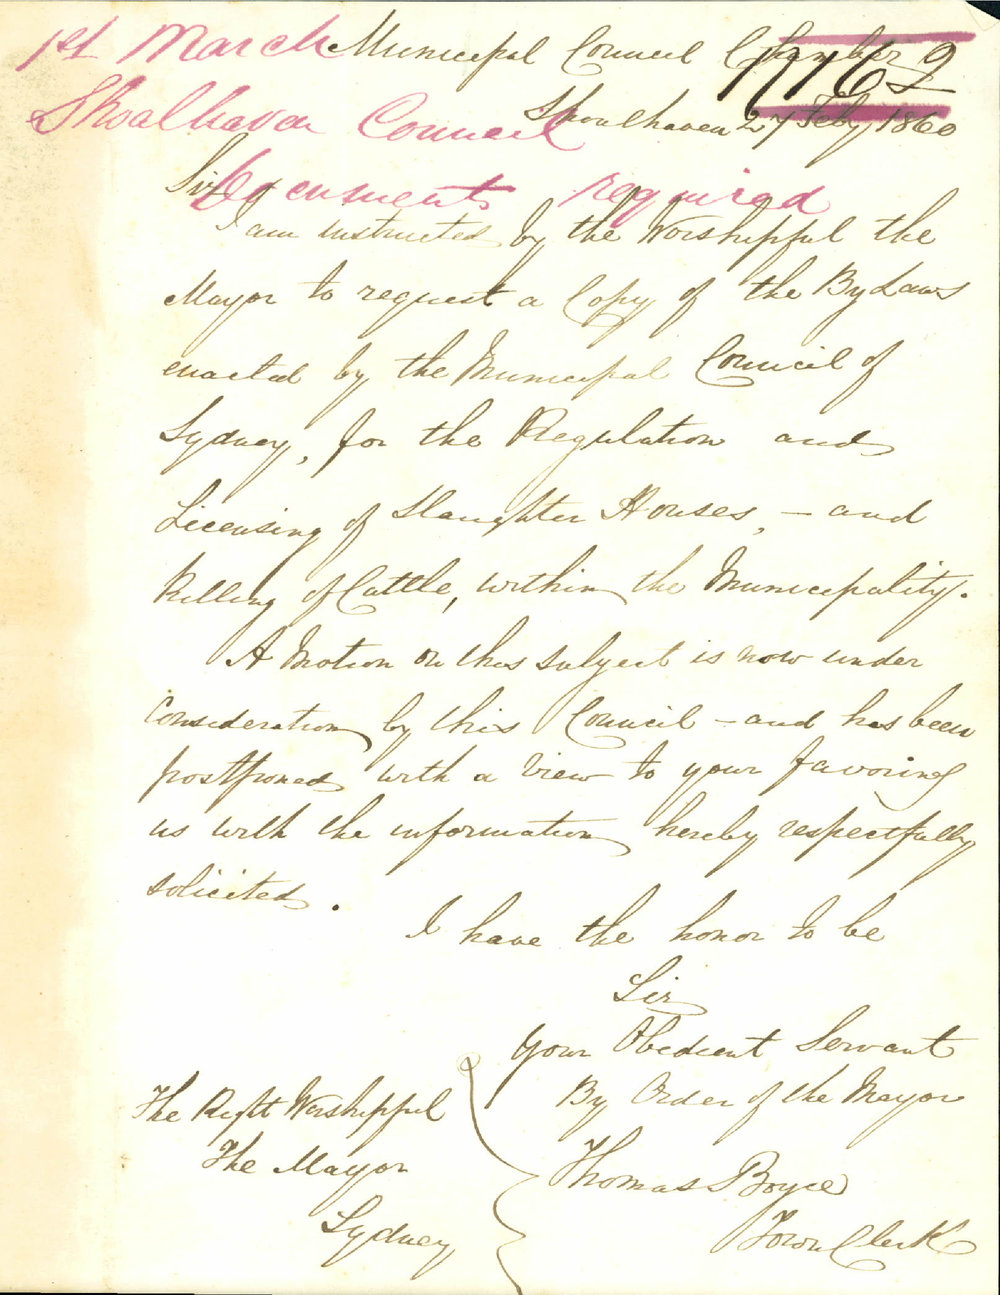 1st March
Shoalhaven Council
Documents required
Municipal Council Chamber
Shoalhaven 27 Feby 1860
Sir
I am instructed by the Worshipful the
Mayor to request a Copy of the By Laws
enacted by the Municipal Council of
Sydney, for the Regulation and
Licensing of Slaughter Houses, - and
Killing of Cattle, within the Municipality.
A Motion on this subject is now under
Consideration by this Council - and has been
postponed with a view to your favoring
us with the information hereby respectfully
solicited.
I have the honor to be
Sir
Your Obedient Servant
By Order of the Mayor
Thomas Boyce
Town Clerk
The Right Worshipful
The Mayor
Sydney